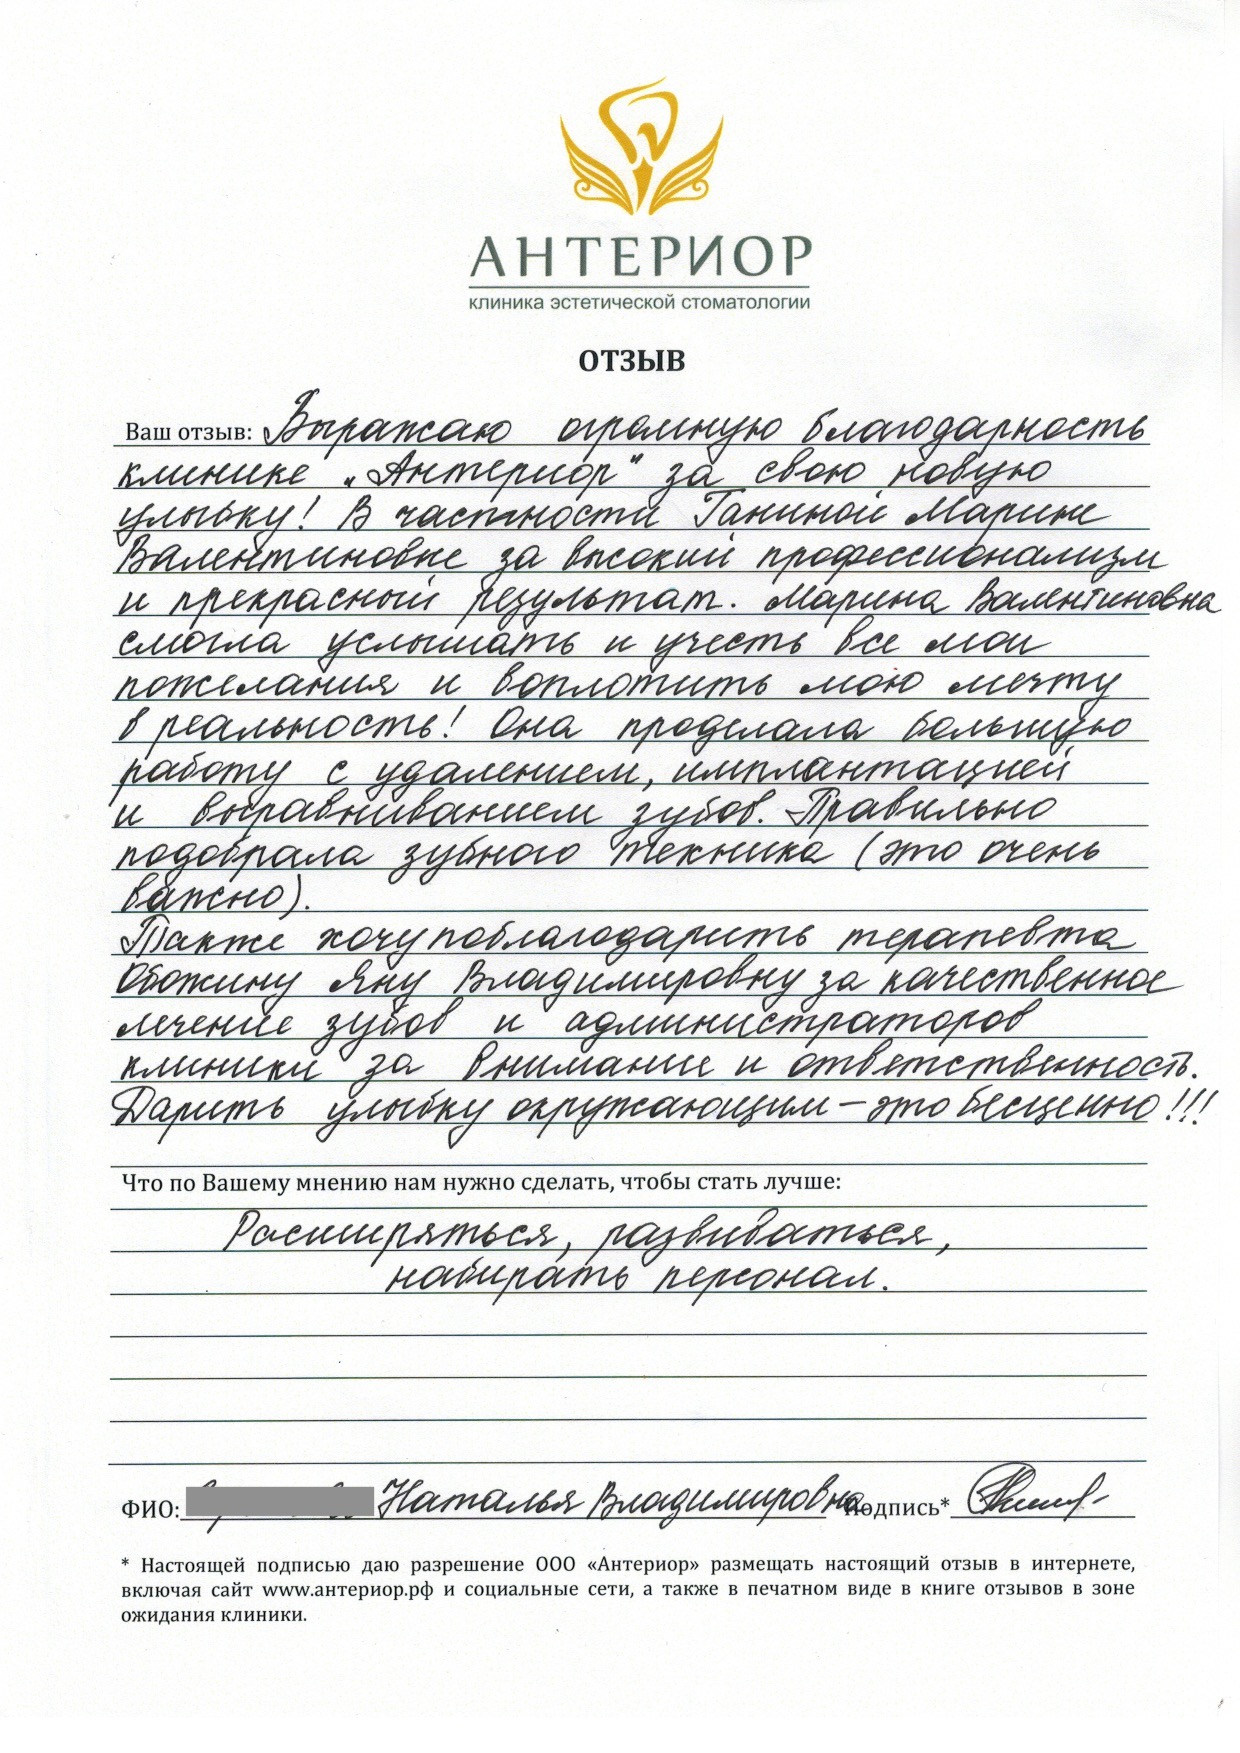 АНТЕРИОР
клиника эстетической стоматологии
ОТЗЫВ
Ваш отзыв: Выражаю огромную благодарность
клинике "Антериор" за свою новую
улыбку! В частности Ганиной Марине
Валентиновне за высокий профессионализм
и прекрасный результат. Марина Валентиновна
смогла услышать и учесть все мои
пожелания и воплотить мою мечту
в реальность! Она проделала большую
работу с удалением, имплантацией
и выравниванием зубов. Правильно
подобрала зубного техника (это очень
важно).
Также хочу поблагодарить терапевта
Обожину Яну Владимировну за качественное
лечение зубов и администраторов
клиники за внимание и ответственность.
Дарить улыбку окружающим – это бесценно!!!
Что по Вашему мнению нам нужно сделать, чтобы стать лучше:
Расширяться, развиваться,
набирать персонал.
ФИО: Наталья Владимировна Подпись*
* Настоящей подписью даю разрешение ООО «Антериор» размещать настоящий отзыв в интернете,
включая сайт www.антериор.рф и социальные сети, а также в печатном виде в книге отзывов в зоне
ожидания клиники.